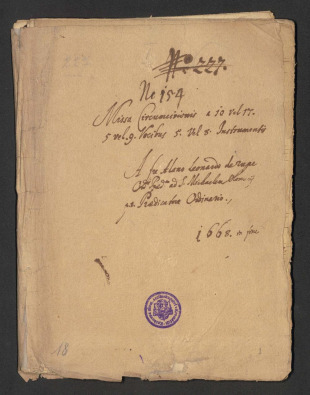 No 227.
No 154
Missa Circumcisionis a 10 vel 17.
5 vel. 9. Vocibus 5. Vel 8. Instrumentis
A fre Alano Leonardo de
Ord. Præd. ad S. Michaelem
Prædicatore Ordinario.
1668.
18